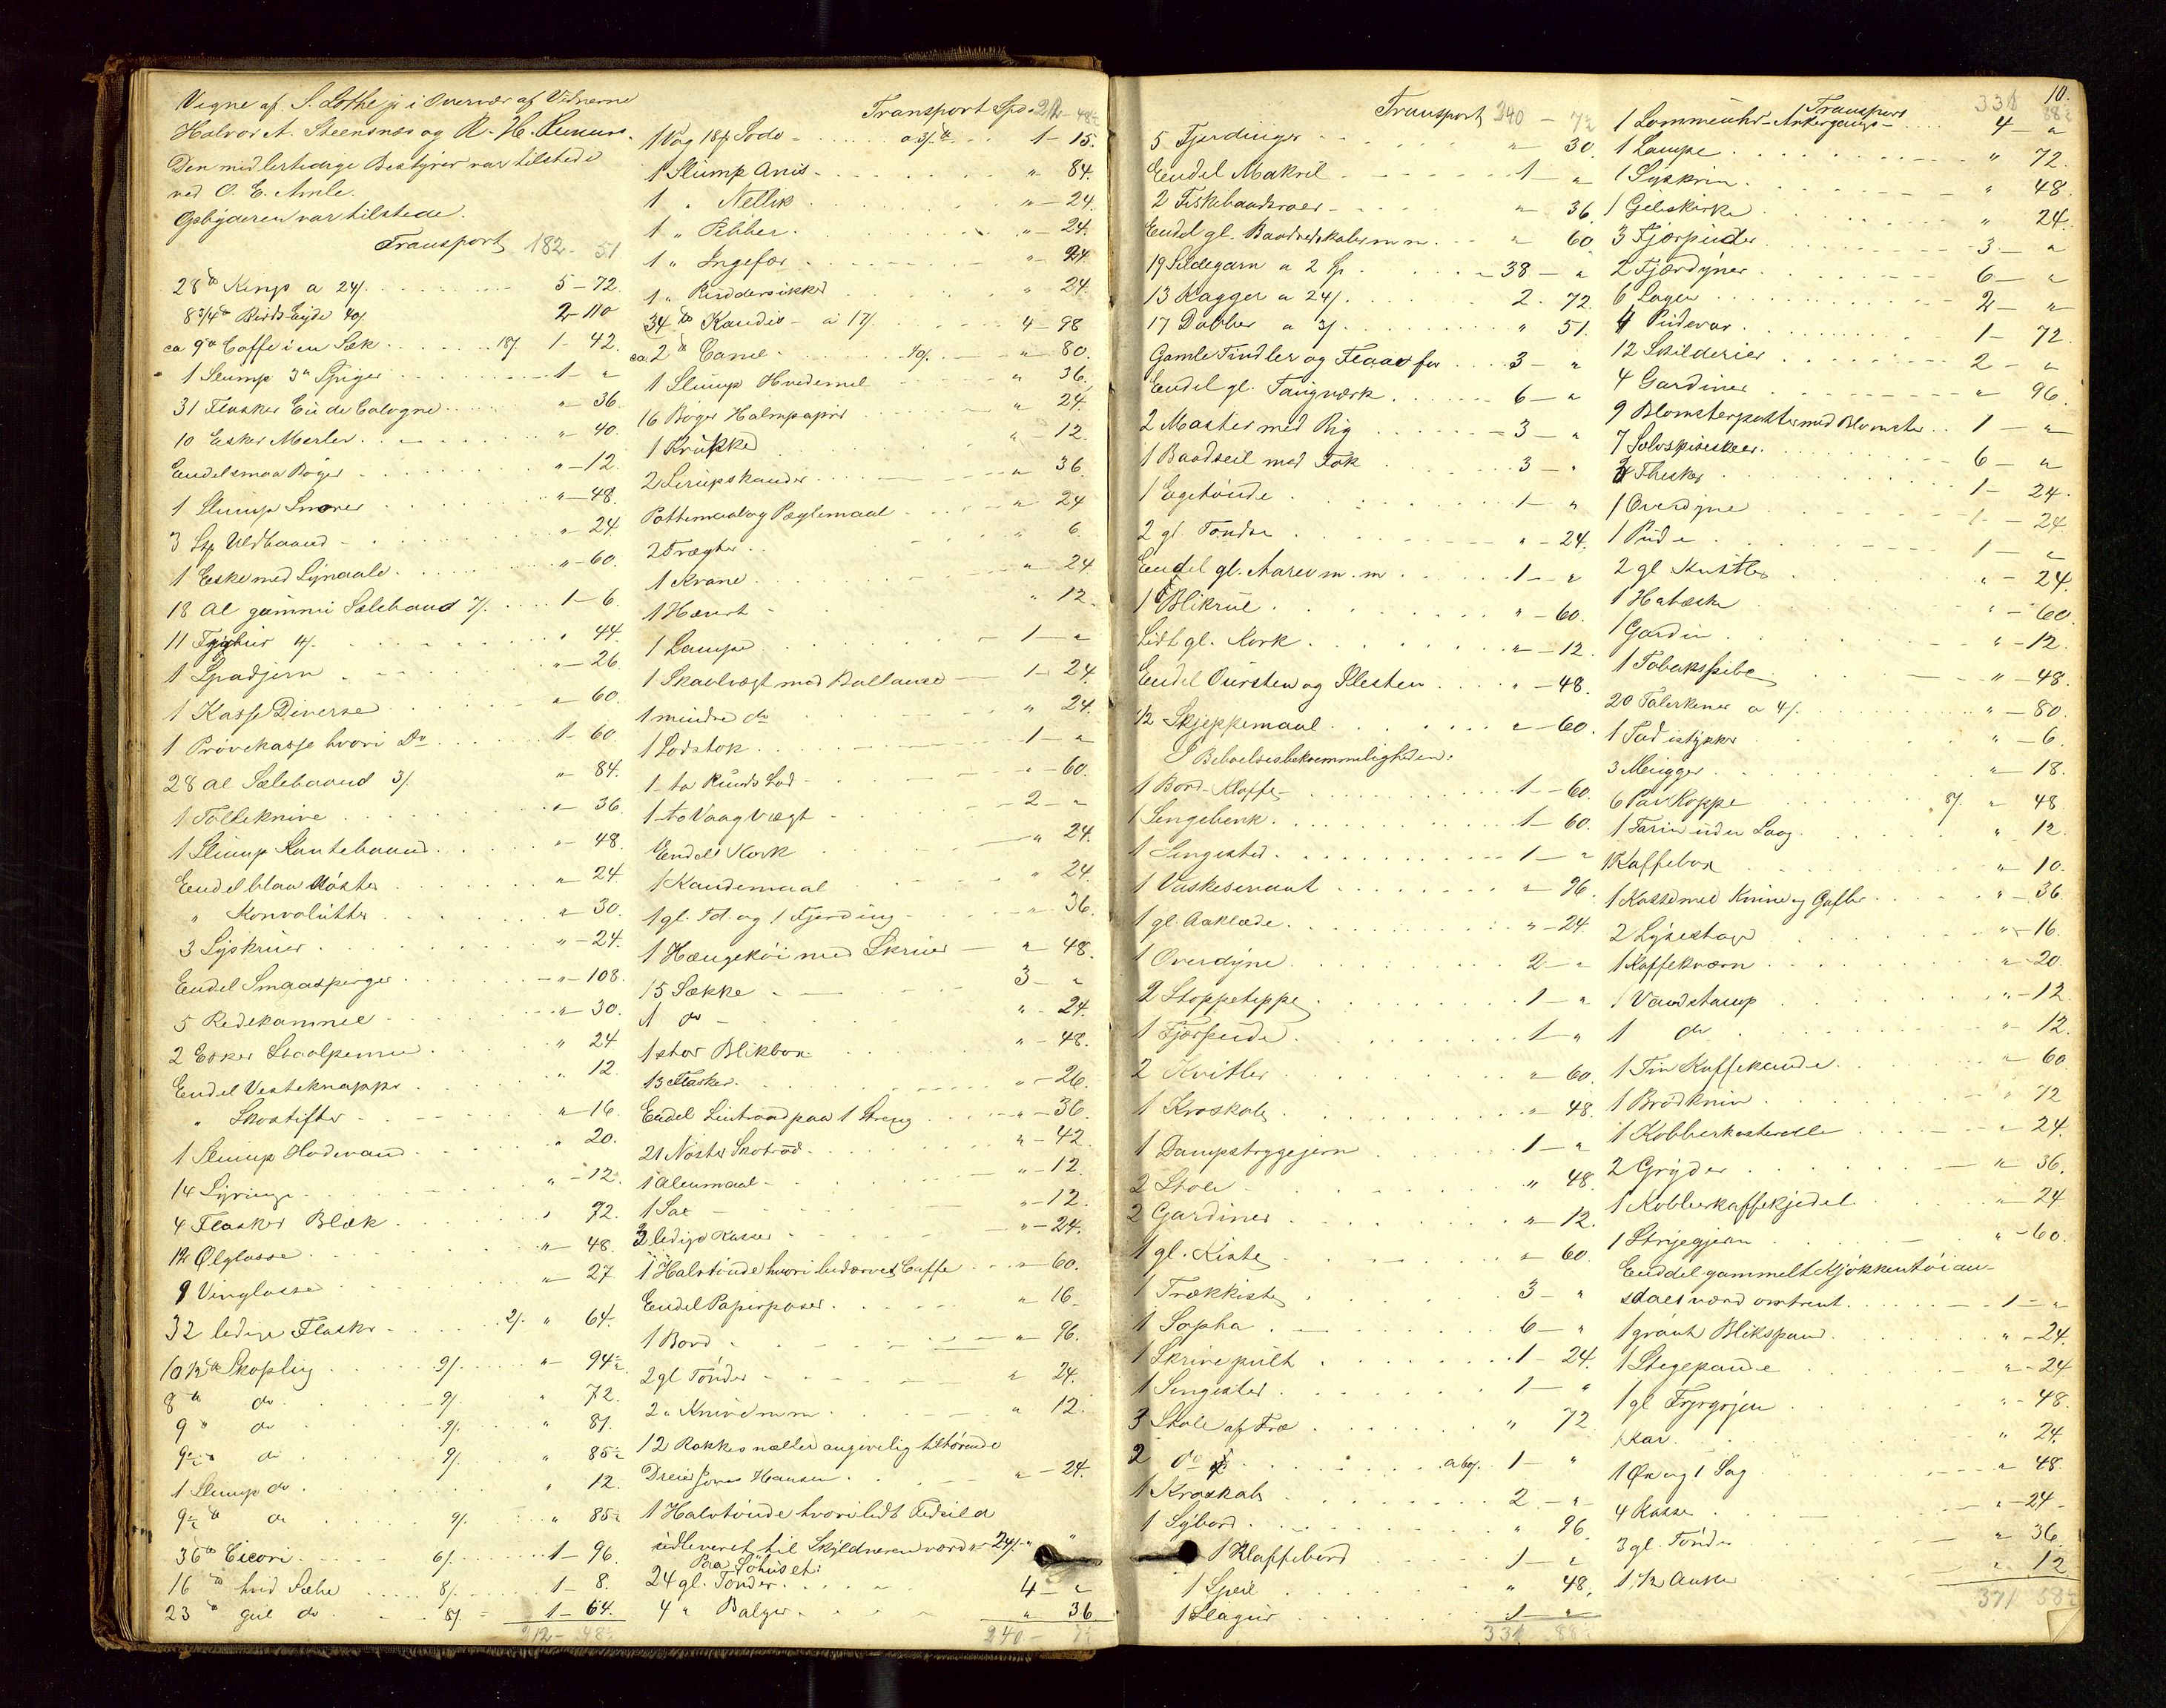 Vegne af S. Lothe jr i Overvær af Vidnerne
Halvor A. Steensnæs og R. H.
Den midlertidige Bestyrer var tilstede
ved O. E. Amle.
Opbyderen var tilstede.
Transport 182 - 51
28 ℔ Rings a 24/. 5 - 72.
8 3/4 ℔ Birds Eyde 40/ 2 - 110
ca 9 ℔ Caffe i en Sæk 18/. 1 - 42.
1 Slump 3" Spiger 1 - "
31 Flasker Eu de Cologne " - 36.
10 Esker Merler " - 40.
Endel smaa Bøger " - 12.
1 Slump Snorer " - 48.
3 Uldbaand " - 24
1 Eske med Synaale " - 60.
18 Al gummi Selebaand 7/. 1 - 6.
11 4/. " 44.
1 Spadjern " - 26.
1 Kasse Diverse " 60.
1 Prøvekasse hvori Do 1 - 60
28 Al Selebaand 3/. " - 84.
1 Follekniv " - 36
1 Slump Kantebaand " - 48.
Endel blaa Nøster " - 24
" Konvolutter " - 30.
3 Syskrier " - 24.
Endel Smaaspiger " - 108.
5 Redekamme " - 30.
2 Esker Staalpenne " 24
Endel Vesteknapper " 12.
" Skostifter " - 16.
1 Slump Hodevand " 20.
14 Syringe " - 12.
4 Flasker Blæk " 72.
12 Ølglasse " - 48.
9 Vinglasse " - 27
32 ledige Flasker 2/. " 64.
10 1/2 ℔ Skoplug 9/. " - 94 1/2
8 ℔ do 9/. " 72.
9 " do 9/. " 81.
9 1/2 " do 9/. " 85 1/2
1 Slump do " 12.
9 1/2 ℔ do 9/. " 85 1/2
36 ℔ Cicori 6/. 1 - 96.
16 ℔ hvid Sæbe 8/. 1 - 8.
23 ℔ gul do 8/. 1 - 64.
212 - 48 1/2
Transport Spd 212 - 48 1/2
1 Vog 18 ℔ Sode a 3/. ℔ 1 - 15.
1 Slump Anis " 84.
1 " Nellik " - 24.
1 " Pebber " - 24.
1 " Ingefær " - 24
1 " Puddersukker " 24.
34 ℔ Kandis a 17/. 4 - 98
ca 2 ℔ Canel 40/. " 80.
1 Slump Hvedemel " 36.
16 Bøger Halmpapir " 24.
1 Krukke " - 12.
2 Sirupskander " 36.
Pottemaal og Pæglemaal " 24
2 Trægter " 6.
1 Krane " 24
1 Hævert " 12.
1 Lampe 1 - "
1 Skaalvægt med Ballance 1 - 24.
1 mindre do " 24.
1 Lodstok 1 - "
1 to Punds Lod " - 60.
1 to Vaag Vægt 2 - "
Endel Kork " 24.
1 Kandemaal " 24.
1 gl. Td. og 1 Fjerding " 36.
1 Hængekøi med Skruer " 48.
15 Sække 3 - "
1 do " - 24.
1 stor Blikbox " - 48.
13 Flasker " - 26.
Endel Lintraad paa 1 Streng " - 36.
21 Nøster Skotraad " - 42.
1 Alenmaal " - 12.
1 Sax " - 12.
3 ledige Kasser " - 24.
1 Halvtønde hvori bedærvet Caffe " - 60.
Endel Papirposer " 16.
1 Bord " 96.
2 gl. Tønder " 24.
2 " Knive m.m. " 12.
12 Rokkesneller angivelig tilhørende
Dreier Hansen " - 24.
1 Halvtønde hvori lidt Fedsild
udleveret til Skyldneren værd 24/. "
Paa Søhuset:
24 gl. Tønder 4 - "
4 " Balger " 36
240 - 7 1/2
Transport 240 - 7 1/2
5 Fjerdinger " 30.
Endel Makrel 1 - "
2 Fiskebaadsroer " 36.
Endel gl. Baadredskaber m.m. " 60
19 Sildegarn a 2 Sp. 38 - "
13 Kagger a 24/. 2 - 72.
17 Dobber a 3/. " 51.
Gamle Tindler og 3 - "
Endel gl. Taugværk 6 - "
2 Master med Rig 3 - "
1 Baadseil med Fok 3 - "
1 Egetønde 1 - "
2 gl. Tønder " - 24.
Endel gl. Aarer m.m 1 - "
1 Blikrul " - 60.
Lidt gl. Kork " - 12.
Endel Oursten og Ilesten " - 48.
1/2 Skjeppemaal " 60.
I Beboelsesbekvemmeligheden:
1 Bord-Klaffe 1 - 60.
1 Sengebenk 1 - 60.
1 Sengsted 1 - "
1 Vaskeservant " 96.
1 gl. Aaklæde " - 24.
1 Overdyne 2 - "
2 Stoppeteppe 1 - "
1 Fjærpude 1 - "
2 Kvitler " 60.
1 Kroskab " 48.
1 Dampstrygejern 1 - "
2 Stole " 48.
2 Gardiner " - 12.
1 gl. Kiste " 60.
1 Trækkiste 3 - "
1 Sopha 6 - "
1 Skrivepult 1 - 24.
1 Sengsted 1 - "
3 Stole af Træ " 72
2 do a 60/. 1 - "
1 Kroskab 2 - "
1 Sybord " 96.
1 Klaffebord 1 - "
1 Speil " 48.
1 Slagur 1 - "
331 88 1/2
10.
Transport 331 88 1/2
1 Lommeuhr-Ankergangs 4 - "
1 Lampe " 72.
1 Syskrin " 48.
1 " 24.
3 Fjærpuder 3 - "
2 Fjærdyner 6 - "
6 Lagen 2 - "
4 Pudevar 1 - 72.
12 Skilderier 2 - "
4 Gardiner " 96.
9 Blomsterpotter med Blomster 1 - "
7 Sølvspiseskeer 6 - "
3 Theskeer 1 - 24.
1 Overdyne 1 - 24
1 Pude 1 - "
2 gl Kvitler " - 24
1 Hatæske " - 60.
1 Gardin " - 12.
1 Tobakspibe " - 48.
20 Talerkener a 4/. " - 80.
1 Fad istykker " - 6.
3 Mugger " 18.
6 Par Koppe 8/. " 48.
1 Tarin uden Laag " 12.
1 Kaffebox " 10.
1 Kasse med Knive og Gafler " - 36.
2 Lysestager " - 16.
1 Kaffekværn " 20.
1 Vandstamp " - 12.
1 do " 12.
1 Tin Kaffekande " 60
1 Brødkniv " 12
1 Kobberkasterolle " 24.
2 Gryder " 36.
1 Kobberkaffekjedel " 24
1 Strygejern " - 60.
Enddel gammelt Kjøkkentøi an-
slaaes værd omtrent 1 - "
1 grønt Blikspand " - 24.
1 Stegepande " - 24
1 gl Fyrgryden " - 48.
1 Kar " 24.
1 Øx og 1 Sag " 48.
4 Kasser " - 24 -
3 gl. Tønder " 36.
1 1/2 Anker " 12
371 58 1/2